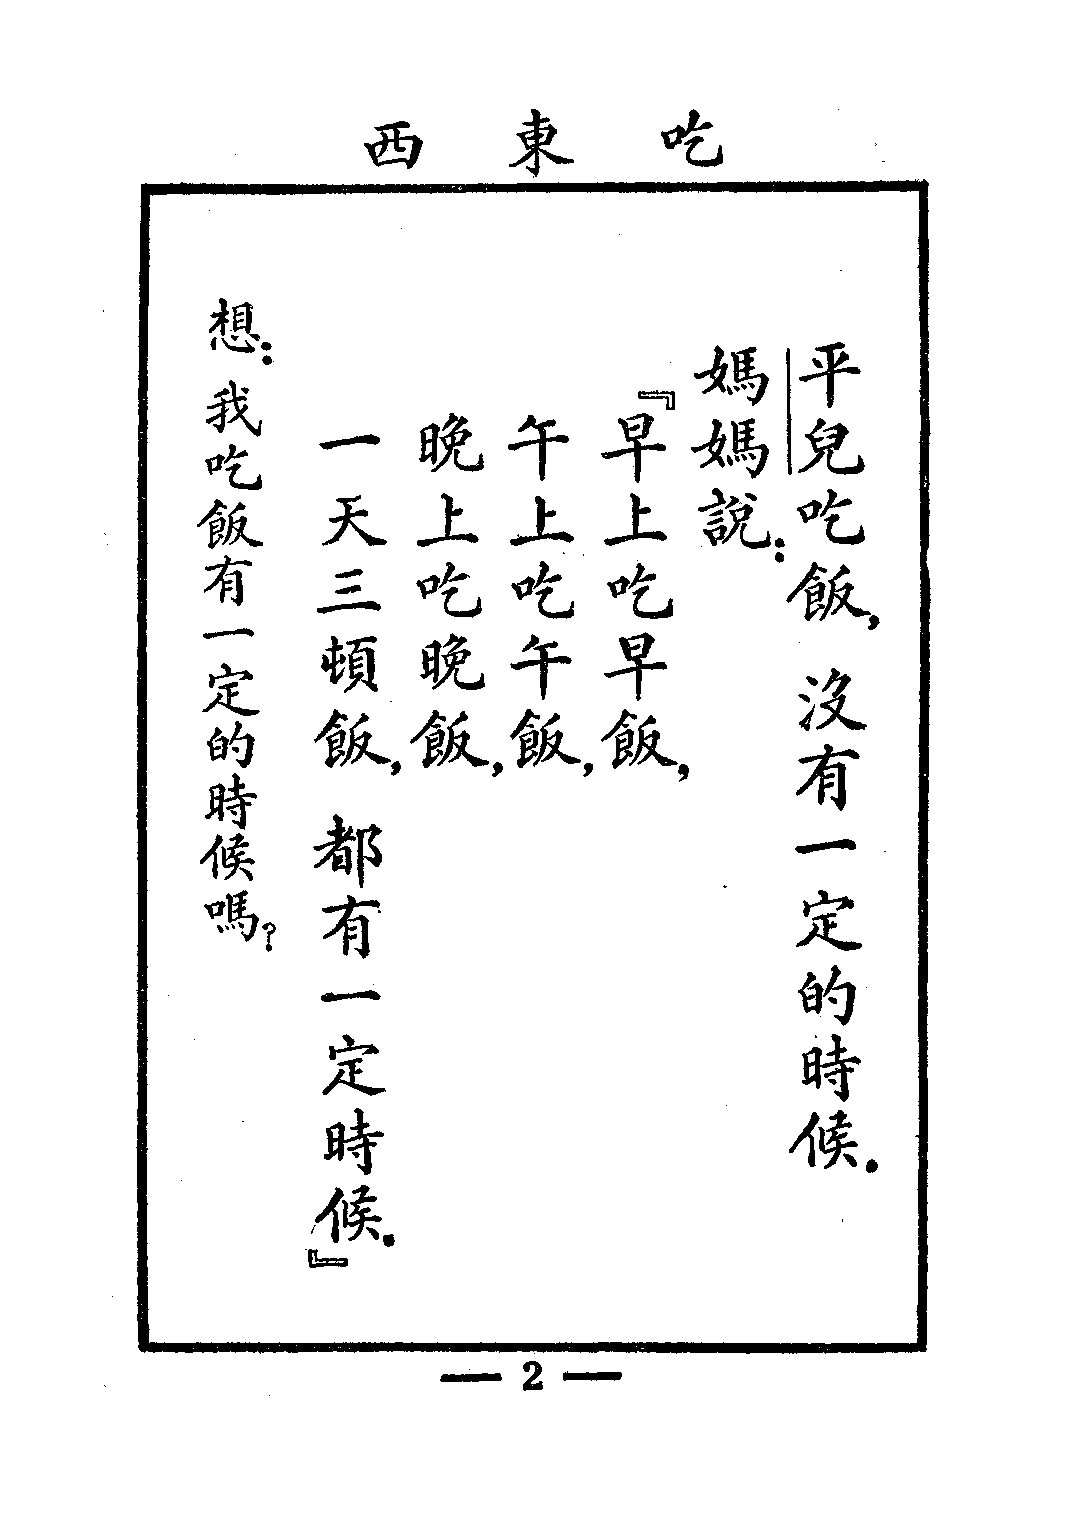 吃東西
平兒吃飯，沒有一定的時候．
媽媽說：
『早上吃早飯，
午上吃午飯，
晚上吃晚飯，
一天三頓飯，都有一定時候．』
想：我吃飯有一定的時候嗎？
— 2 —